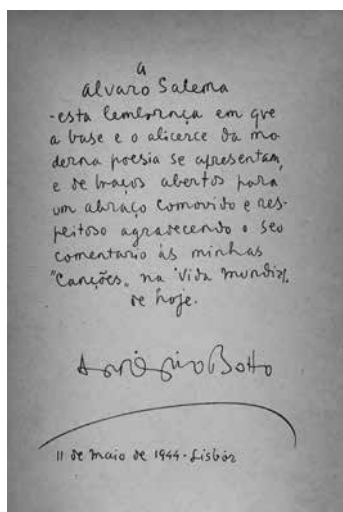 a
Alvaro Salema
- esta lembrança em que
a base e o alicerce da mo
derna poesia se apresentam,
e de braços abertos para
um abraço comovido e res-
peitoso agradecendo o seo
comentario às minhas
"Canções„ na "Vida Mundial„
de hoje.
António Botto
11 de Maio de 1944 - Lisbôa